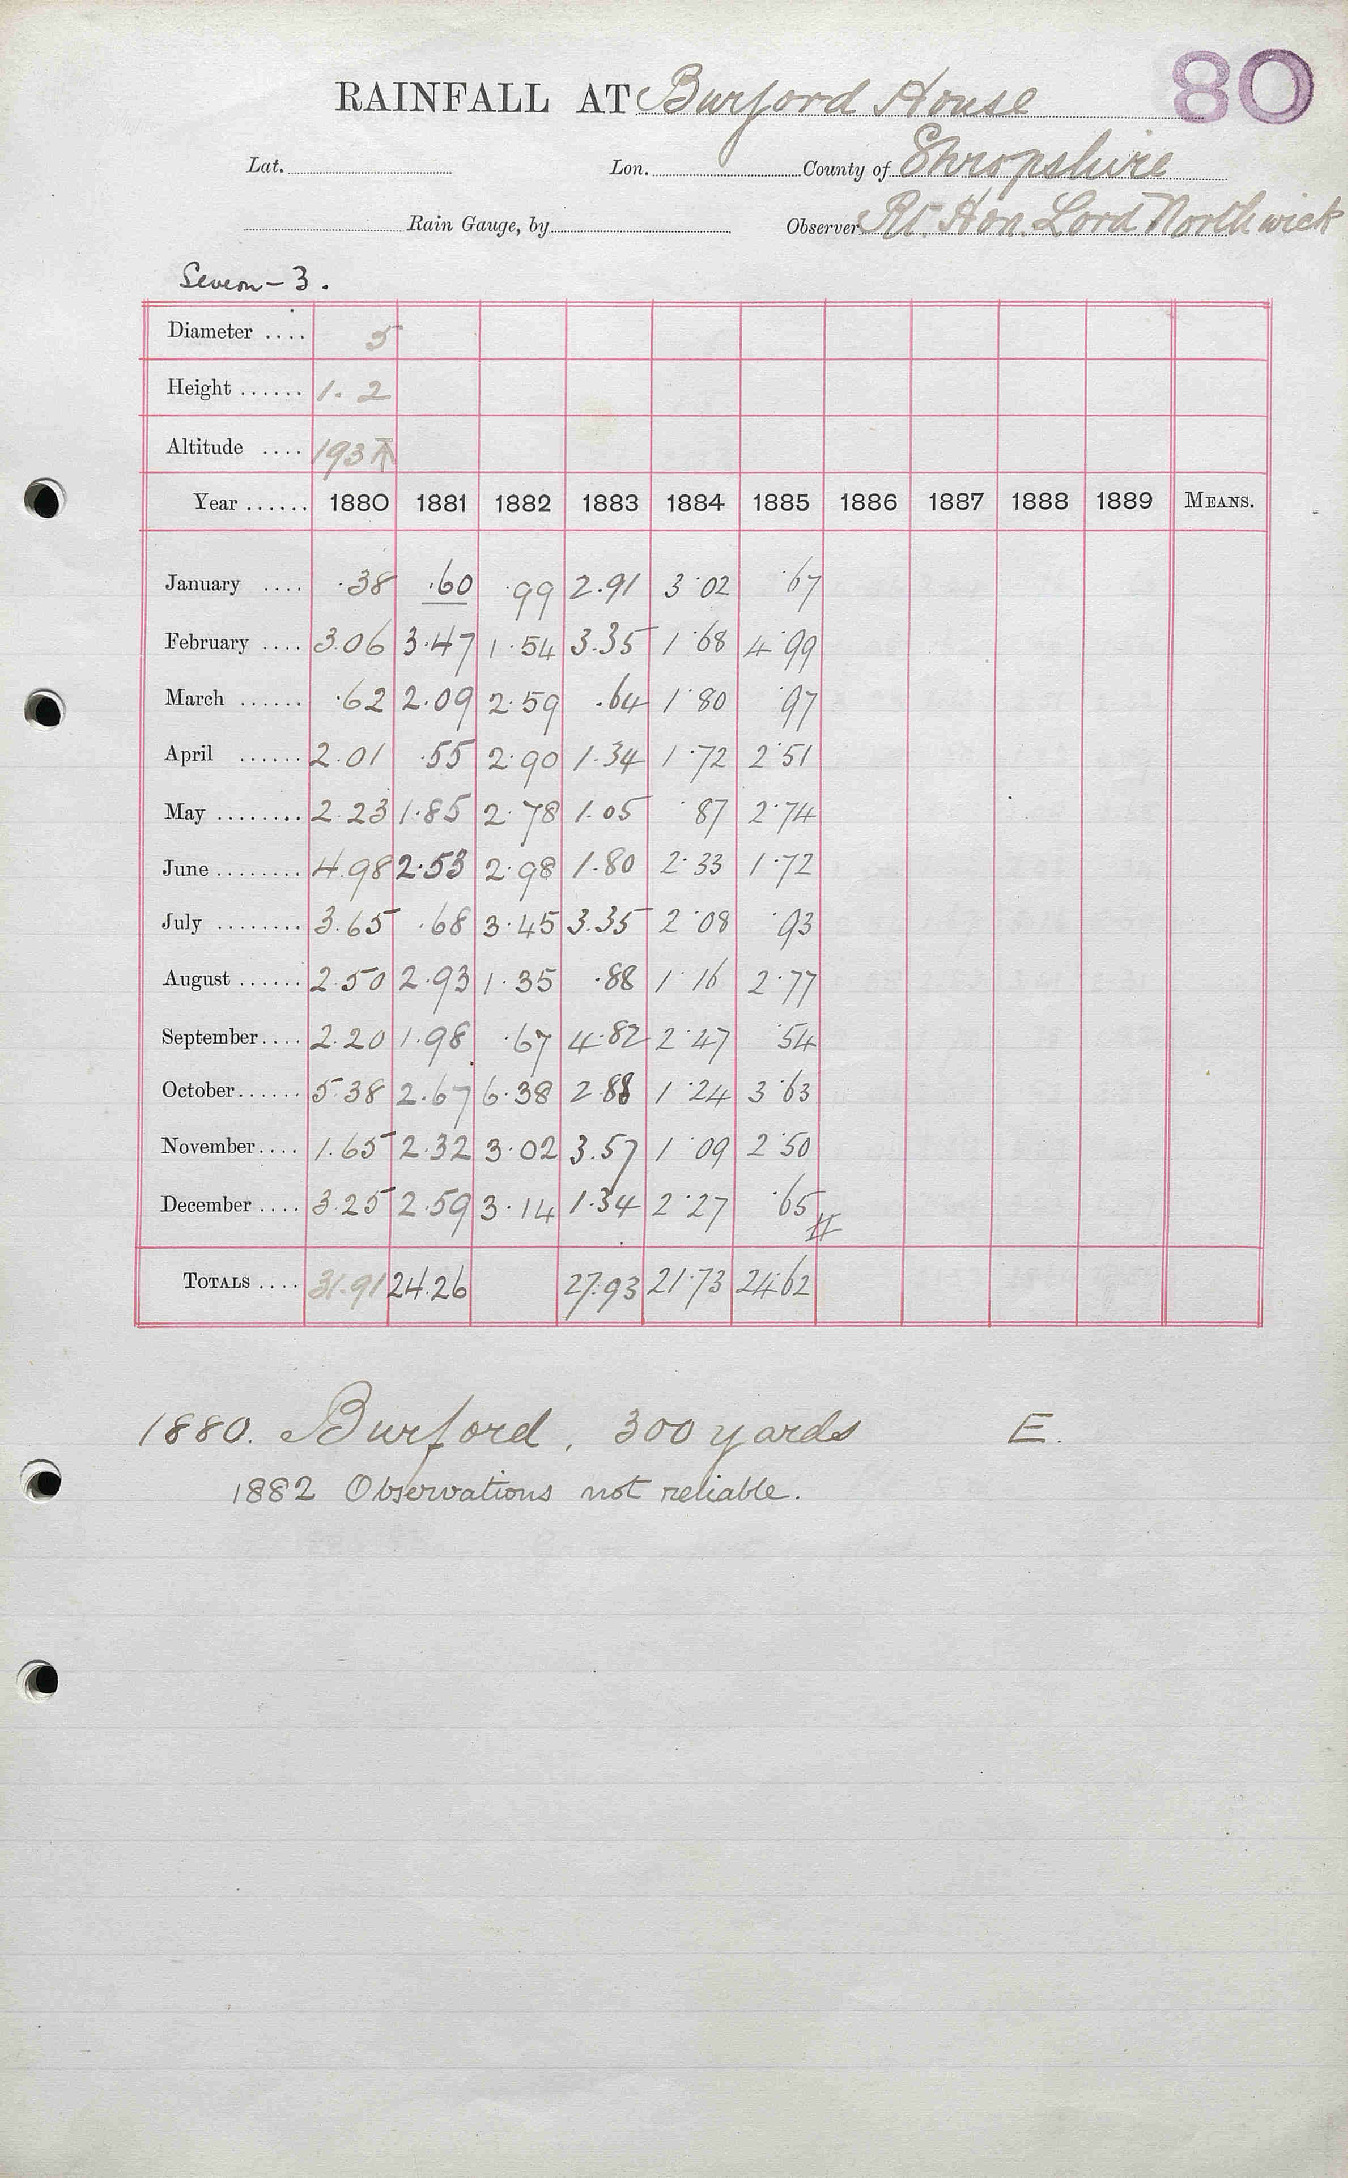 80
RAINFALL AT Burford House
Lat. Lon. County of Shropshire
Rain Gauge, by Observer Rt. Hon. Lord Northwick
Severn - 3.
Diameter .... 5
Height ...... 1. 2
Altitude .... 193
Year ...... 1880 1881 1882 1883 1884 1885 1886 1887 1888 1889 MEANS.
January .... .38 .60 .99 2.91 3.02 .67
February .... 3.06 3.47 1.54 3.35 1.68 4.99
March ...... .62 2.09 2.59 .64 1.80 .97
April ...... 2.01 .55 2.90 1.34 1.72 2.51
May ........ 2.23 1.85 2.78 1.05 .87 2.74
June ........ 4.98 2.53 2.98 1.80 2.33 1.72
July ........ 3.65 .68 3.45 3.35 2.08 .93
August ...... 2.50 2.93 1.35 .88 1.16 2.77
September.... 2.20 1.98 .67 4.82 2.47 .54
October...... 5.38 2.67 6.38 2.88 1.24 3.63
November.... 1.65 2.32 3.02 3.57 1.09 2.50
December .... 3.25 2.59 3.14 1.34 2.27 .65
TOTALS .... 31.91 24.26 27.93 21.73 24.62
1880. Burford, 300 yards E.
1882 Observations not reliable.